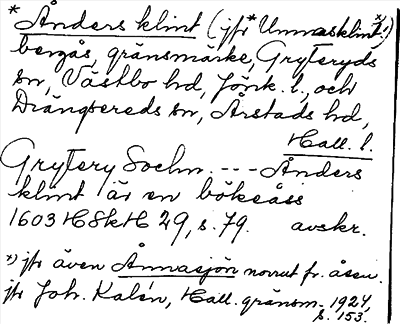 * Ånders klint (jfr * Unnasklint *)!)
bergås, gränsmärke, Gryteryds
sn, Västbo hd, Jönk. l., och
Drängsereds sn, Årstads hd,
Hall. l.
Grytery Sochn. --- Ånders
klint är en bökeåss
1603 HSkH 29, s. 79. avskr.
*) jfr även Ånnasjön norrut fr. åsen.
jfr Joh. Kalén, Hall. gränsm. 1924,
s. 153.